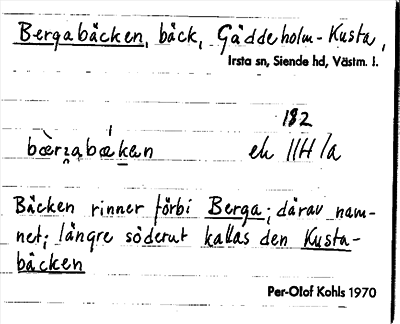 Bergabäcken, bäck, Gäddeholm-Kusta,
Irsta sn, Siende hd, Västm. l.
182
bæ̀rgabækən ek 11H/a
Bäcken rinner förbi Berga; därav nam-
net; längre söderut kallas den Kusta-
bäcken
Per-Olof Kohls 1970